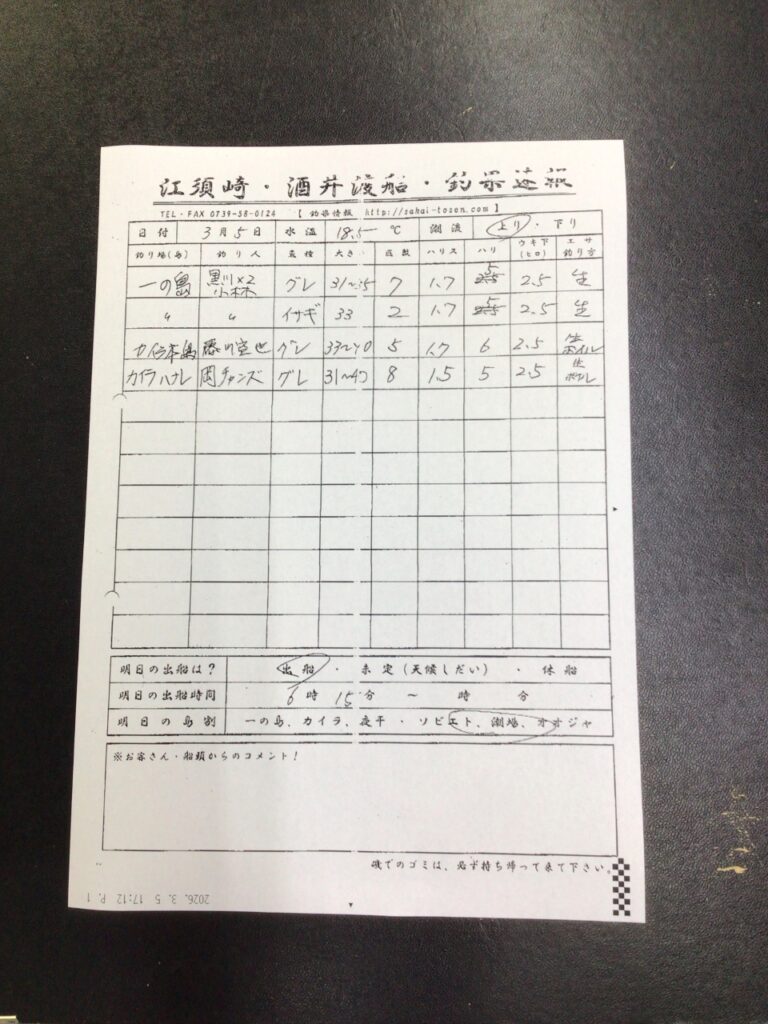 江須崎・酒井渡船・釣果速報
TEL・FAX 0739-58-0124 【 釣果情報 http://sakai-tosen.com 】
日付 3月5日 水温 18.5 ℃ 潮流 上り・下り
釣り場(島) 釣り人 魚種 大きさ 匹数 ハリス ハリ ウキ下(ヒロ) エサ釣り方
一の島 黒川×2 小林 グレ 31〜35 7 1.7 5 2.5 生
〃 〃 イサギ 33 2 1.7 5 2.5 生
カイラ本島 グレ 33〜40 5 1.7 6 2.5 生ボイル
カイラハナレ 岡チャンズ グレ 31〜40 8 1.5 5 2.5 生ボイル
明日の出船は? 出船・未定(天候しだい)・休船
明日の出船時間 6時15分〜 時 分
明日の島割 一の島、カイラ、夜干・ソビエト、潮場、オオジャ
※お客さん・船頭からのコメント!
磯でのゴミは、必ず持ち帰って来て下さい。
2026. 3. 5 17:12 P. 1